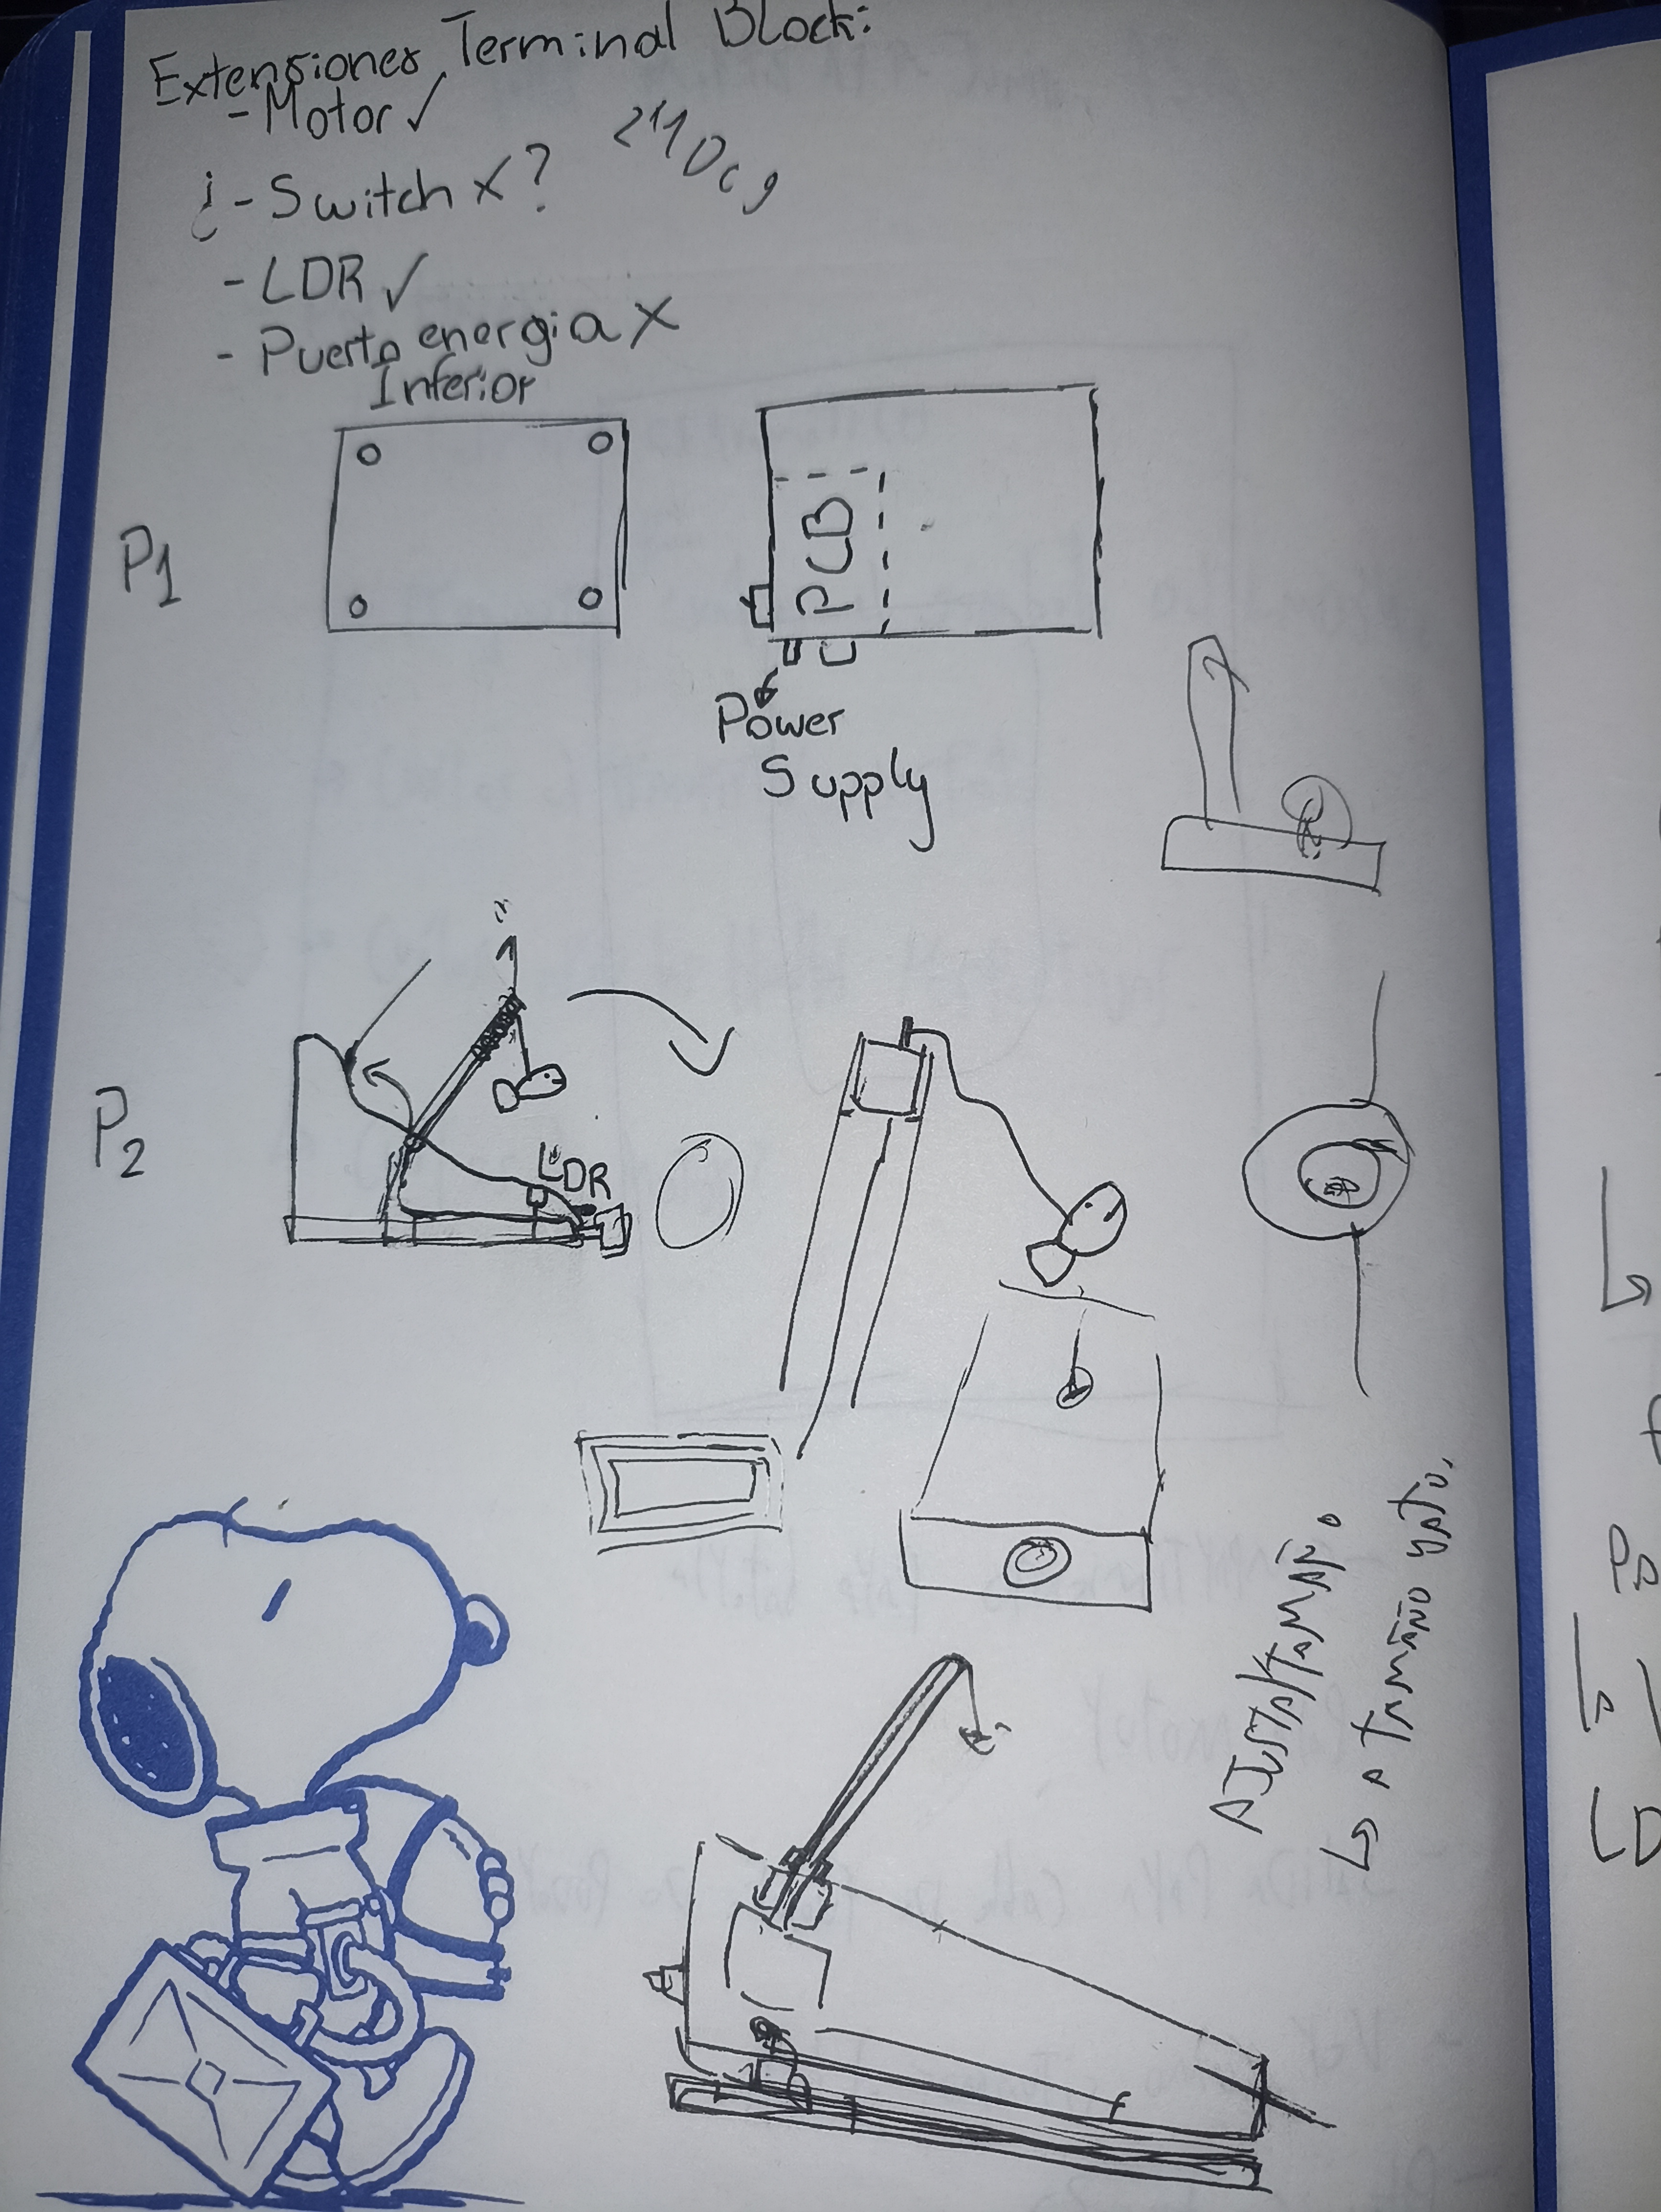 Extensiones Terminal Block:
- Motor ✓
¿ - Switch x ?
- LDR ✓
- Puerto energia X
Inferior
P1
PCB
Power
Supply
P2
LDR
↳ a tamaño gato.